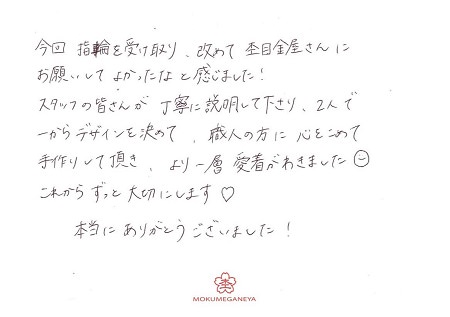 今回 指輪を受け取り、改めて 杢目金屋さんに
お願いして よかったな と感じました！
スタッフの皆さんが 丁寧に説明して下さり、2人で
一からデザインを決めて、職人の方に 心をこめて
手作りして頂き、より一層 愛着がわきました☺
これから ずっと 大切にします♡
本当に ありがとう ございました！
杢
MOKUMEGANEYA